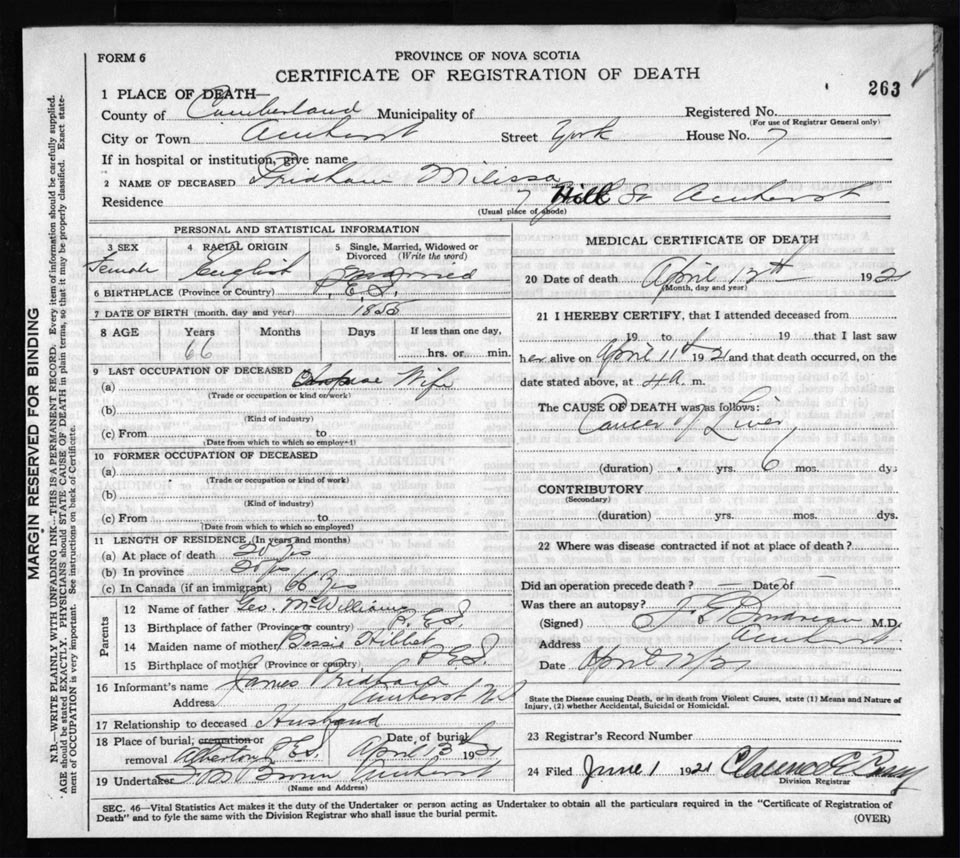 FORM 6
PROVINCE OF NOVA SCOTIA
CERTIFICATE OF REGISTRATION OF DEATH
263
1 PLACE OF DEATH—
County of Cumberland Municipality of
Registered No.
(For use of Registrar General only)
City or Town Amherst Street York House No. 7
If in hospital or institution, give name
2 NAME OF DECEASED Pridham Milissa
Residence 7 Hill St Amherst
(Usual place of abode)
PERSONAL AND STATISTICAL INFORMATION
3 SEX Female
4 RACIAL ORIGIN English
5 Single, Married, Widowed or Divorced (Write the word) Married
6 BIRTHPLACE (Province or Country) P.E.I.
7 DATE OF BIRTH (month, day and year) 1855
8 AGE Years Months Days If less than one day,
66 hrs. or min.
9 LAST OCCUPATION OF DECEASED
(a) Wife
(Trade or occupation or kind of work)
(b)
(Kind of industry)
(c) From to
(Date from which to which so employed)
10 FORMER OCCUPATION OF DECEASED
(a)
(Trade or occupation or kind of work)
(b)
(Kind of industry)
(c) From to
(Date from which to which so employed)
11 LENGTH OF RESIDENCE (In years and months)
(a) At place of death 20 yrs
(b) In province 20 yrs
(c) In Canada (if an immigrant) 66 yrs
Parents
12 Name of father Geo. McWilliams
13 Birthplace of father (Province or country) P.E.I.
14 Maiden name of mother Bessie
15 Birthplace of mother (Province or country) P.E.I.
16 Informant's name James Pridham
Address Amherst NS
17 Relationship to deceased Husband
18 Place of burial, cremation or removal Alberton P.E.I.
Date of burial April 13th 1921
19 Undertaker Brown Amherst
(Name and Address)
MEDICAL CERTIFICATE OF DEATH
20 Date of death April 12th 1921
(Month, day and year)
21 I HEREBY CERTIFY, that I attended deceased from
19 to 19 that I last saw
her alive on April 11th 1921 and that death occurred, on the
date stated above, at 4 a. m.
The CAUSE OF DEATH was as follows:
Cancer of Liver
(duration) yrs. 6 mos. dys
CONTRIBUTORY
(Secondary)
(duration) yrs. mos. dys.
22 Where was disease contracted if not at place of death?
Did an operation precede death? — Date of —
Was there an autopsy?
(Signed) M.D.
Address Amherst
Date April 12/21
State the Disease causing Death, or in death from Violent Causes, state (1) Means and Nature of
Injury, (2) whether Accidental, Suicidal or Homicidal.
23 Registrar's Record Number
24 Filed June 1 1921 Clarence
Division Registrar
SEC. 46—Vital Statistics Act makes it the duty of the Undertaker or person acting as Undertaker to obtain all the particulars required in the "Certificate of Registration of
Death" and to fyle the same with the Division Registrar who shall issue the burial permit.
(OVER)
MARGIN RESERVED FOR BINDING
N.B.—WRITE PLAINLY WITH UNFADING INK—THIS IS A PERMANENT RECORD. Every item of information should be carefully supplied.
AGE should be stated EXACTLY. PHYSICIANS should STATE CAUSE OF DEATH in plain terms, so that it may be properly classified. Exact state-
ment of OCCUPATION is very important. See instructions on back of Certificate.